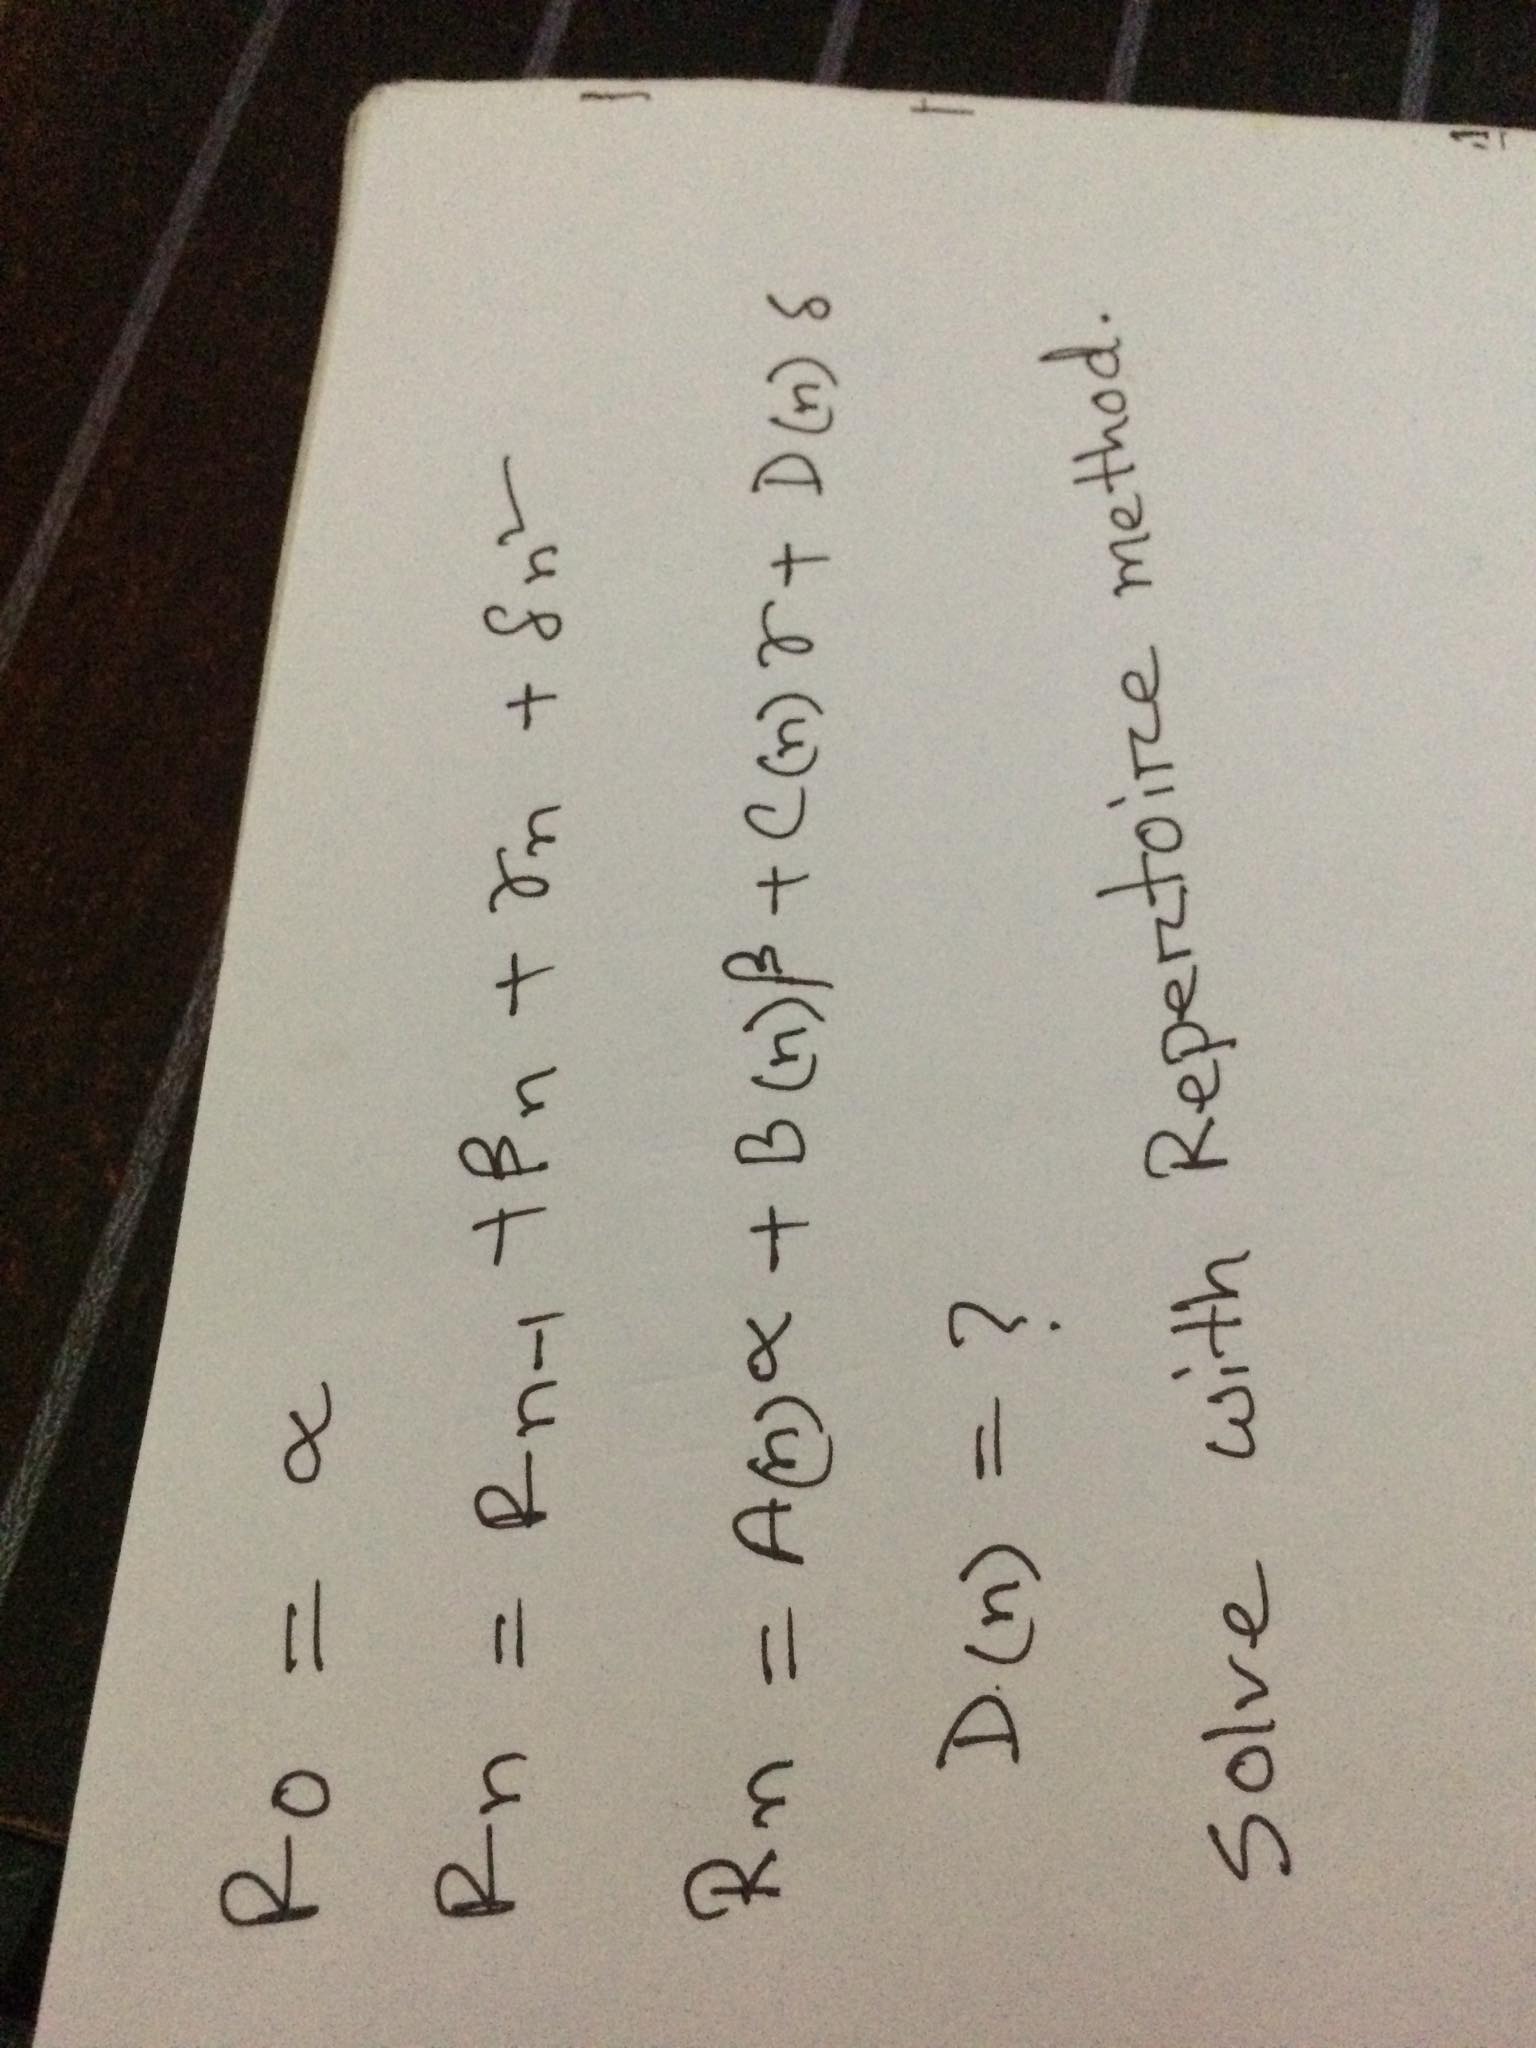 R0 = α
Rn = Rn-1 + βn + γn + δn²
Rn = A(n)α + B(n)β + C(n)γ + D(n)δ
D(n) = ?
Solve with Repertoire method.